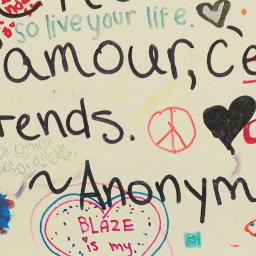 so live your life.
'amour, c'e
rends.
~Anonym
BLAZE
is my